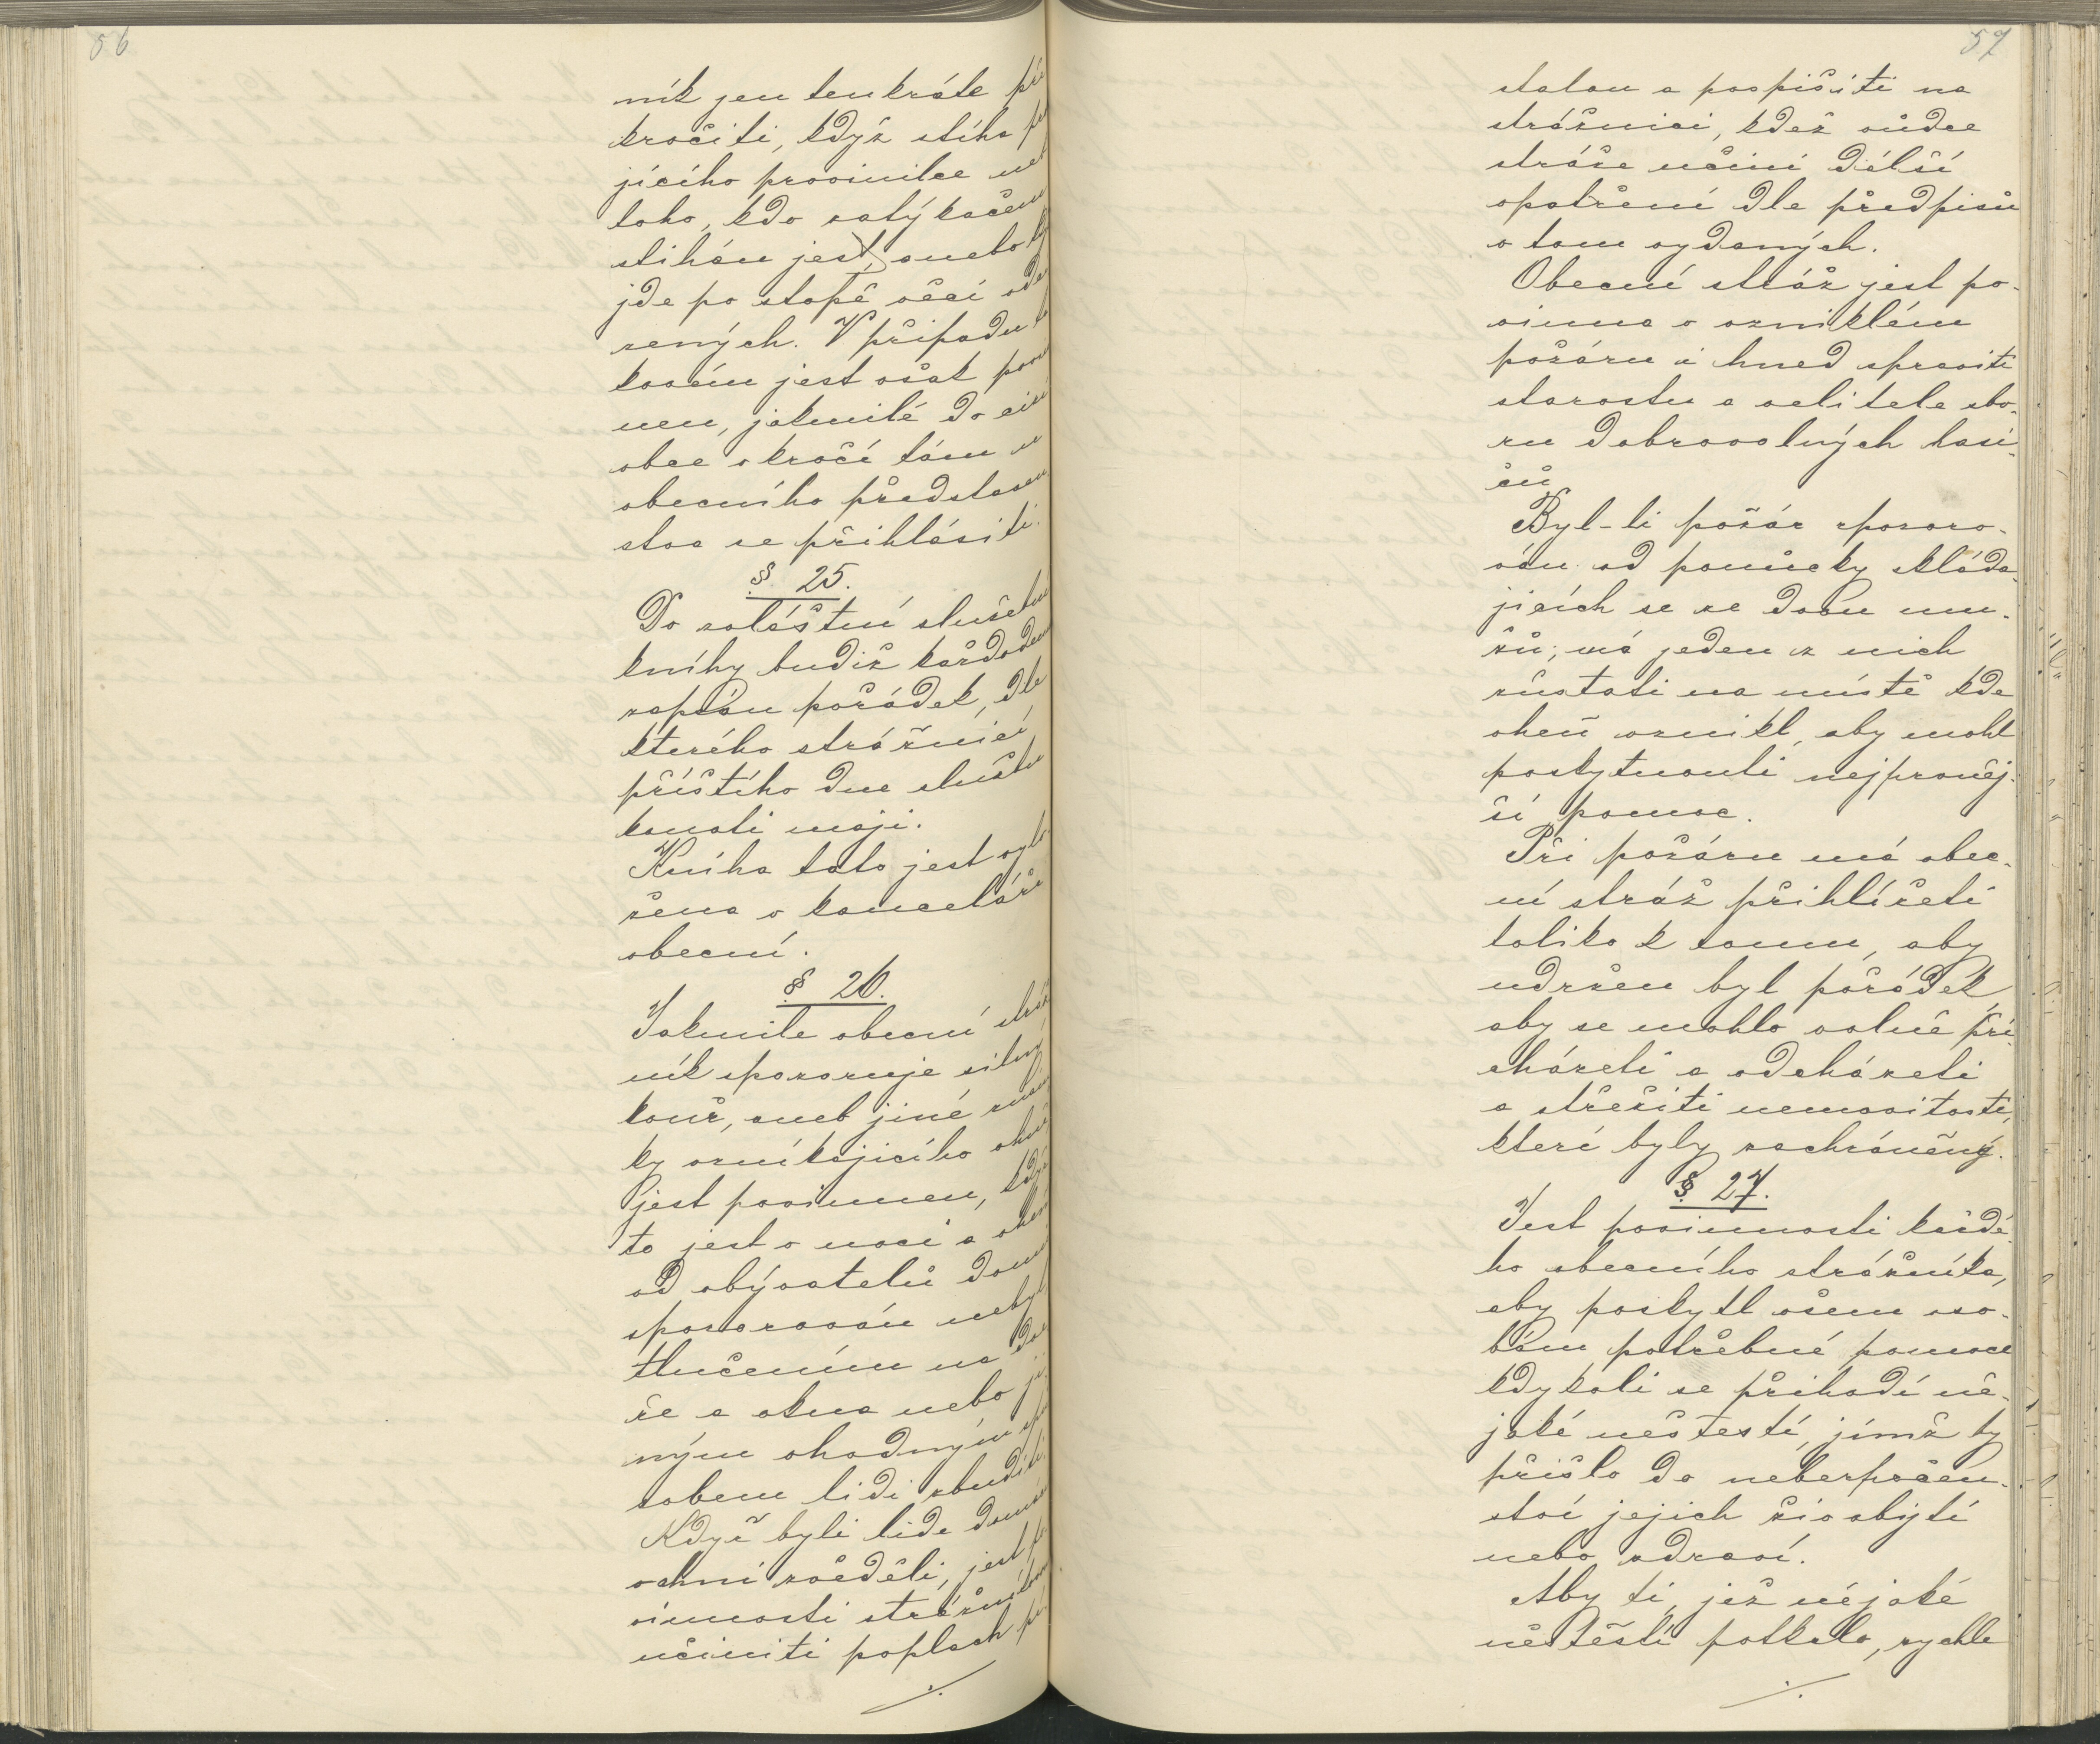 56
ník jen tenkráte při
kročiti, když stíha
jícího provinilce
toho, kdo zatýkačem
stihán jest, anebo
jde po stopě věcí
zených. V případu
kovém jest však povi
nen, jakmilé do cizí
obce vkročí tám u
obecního představen
stva se přihlásiti.
§ 25.
Do zvláštní služební
kníhy budiž každoden
zapsán pořádek, dle
kterého strážníci
příštího dne službu
konati maji.
Kníha tato jest vylo
žena v kanceláře
obecní.
§ 26.
Jakmile obecní stráž
ník spozoruje silný
kouř, aneb jiné znám
ky vzníkajicího ohně
jest povinnen, když
to jest v noci a oheň
od obývatelů domu
spozorován nebyl
tlučením na dve
ře a okna nebo ji
ným vhodným spů
sobem lidi zbuditi.
Když byli lide domu
ohni zvěděli, jest po
vinnosti strážníkovou
učiniti poplach pí
./.
57
stalou a pospíšiti na
strážnici, kdež vůdce
stráže učiní dálší
opatření dle předpisů
o tom vydaných.
Obecní stráž jest po-
vinna o vzniklém
požáru i hned spraviti
starostu a velitele sbo-
ru dobrovolných hasi-
čů
Byl-li požár spozoro-
ván od pomůcky skláda-
jicích se ze dvou mu-
žů, má jeden z nich
zůstati na místě kde
oheň vznikl, aby mohl
poskytnouti nejprvněj-
ší pomoc.
Při požáru má obec-
ní stráž přihlížeti
toliko k tomu, aby
udržen byl pořádek,
aby se mohlo volně při-
cházeti a odcházeti
a střežiti nemovitosti,
které byly zachráněny.
§ 27.
Jest povinnosti každé-
ho obecního strážníka,
aby poskytl všem oso-
bám potřebné pomoce
kdykoli se přihodí ně-
jaké neštestí, jímž by
přišlo do neberpečen-
ství jejich živobytí
nebo zdraví.
Aby ti, jež nějaké
něštěstí potkalo, rychle
./.